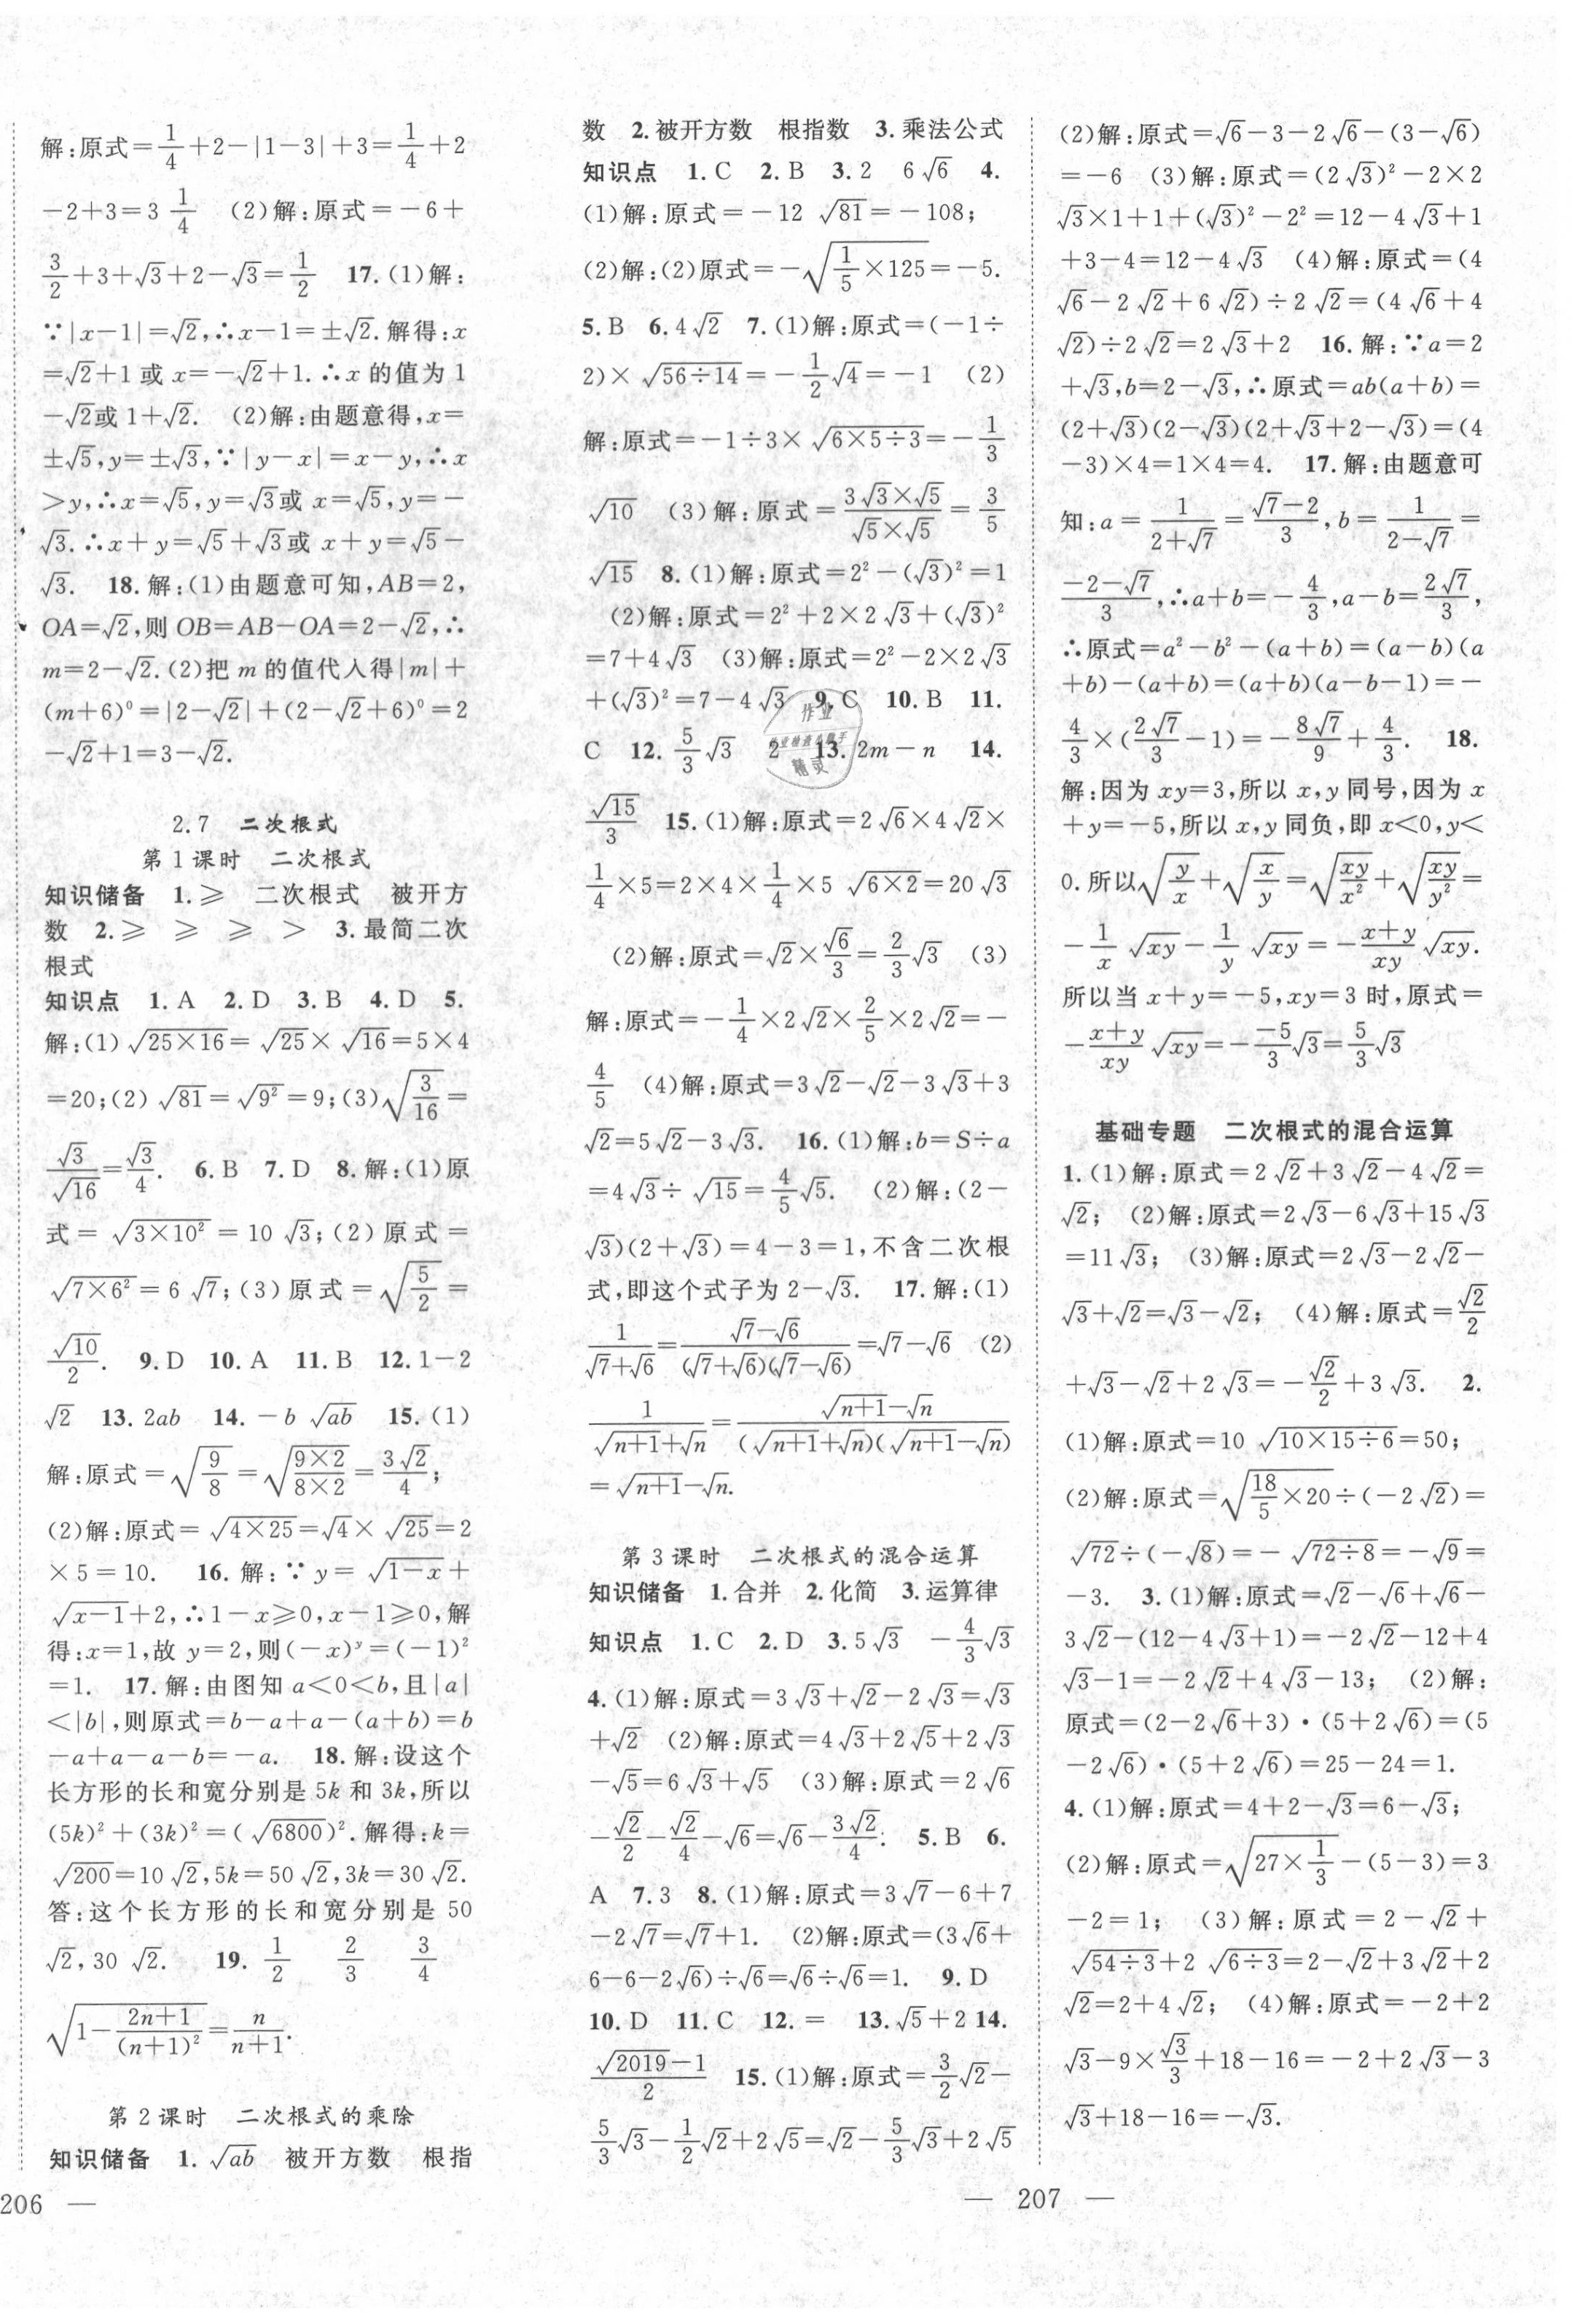 解:原式=1/4+2-|1-3|+3=1/4+2
-2+3=3 1/4 (2)解:原式=-6+
3/2+3+√3+2-√3=1/2 17.(1)解:
∵|x-1|=√2,∴x-1=±√2.解得:x
=√2+1 或 x=-√2+1.∴x 的值为 1
-√2或 1+√2. (2)解:由题意得,x=
±√5,y=±√3,∵|y-x|=x-y,∴x
>y,∴x=√5,y=√3或 x=√5,y=-
√3.∴x+y=√5+√3或 x+y=√5-
√3. 18.解:(1)由题意可知,AB=2,
OA=√2,则 OB=AB-OA=2-√2,∴
m=2-√2.(2)把 m 的值代入得|m|+
(m+6)⁰=|2-√2|+(2-√2+6)⁰=2
-√2+1=3-√2.
2.7 二次根式
第 1 课时 二次根式
知识储备 1.≥ 二次根式 被开方
数 2.≥ ≥ ≥ > 3.最简二次
根式
知识点 1.A 2.D 3.B 4.D 5.
解:(1)√(25×16)=√25×√16=5×4
=20;(2)√81=√(9²)=9;(3)√(3/16)=
√3/√16=√3/4. 6.B 7.D 8.解:(1)原
式=√(3×10²)=10√3;(2)原式=
√(7×6²)=6√7;(3)原式=√(5/2)=
√10/2. 9.D 10.A 11.B 12.1-2
√2 13.2ab 14.-b√(ab) 15.(1)
解:原式=√(9/8)=√((9×2)/(8×2))=3√2/4;
(2)解:原式=√(4×25)=√4×√25=2
×5=10. 16.解:∵y=√(1-x)+
√(x-1)+2,∴1-x≥0,x-1≥0,解
得:x=1,故 y=2,则(-x)ʸ=(-1)²
=1. 17.解:由图知 a<0<b,且|a|
<|b|,则原式=b-a+a-(a+b)=b
-a+a-a-b=-a. 18.解:设这个
长方形的长和宽分别是 5k 和 3k,所以
(5k)²+(3k)²=(√6800)².解得:k=
√200=10√2,5k=50√2,3k=30√2.
答:这个长方形的长和宽分别是 50
√2,30√2. 19.1/2 2/3 3/4
√(1-(2n+1)/(n+1)²)=n/(n+1).
第 2 课时 二次根式的乘除
知识储备 1.√(ab) 被开方数 根指
206 —
数 2.被开方数 根指数 3.乘法公式
知识点 1.C 2.B 3.2 6√6 4.
(1)解:原式=-12√81=-108;
(2)解:(2)原式=-√(1/5×125)=-5.
5.B 6.4√2 7.(1)解:原式=(-1÷
2)×√(56÷14)=-1/2√4=-1 (2)
解:原式=-1÷3×√(6×5÷3)=-1/3
√10 (3)解:原式=(3√3×√5)/(√5×√5)=3/5
√15 8.(1)解:原式=2²-(√3)²=1
(2)解:原式=2²+2×2√3+(√3)²
=7+4√3 (3)解:原式=2²-2×2√3
+(√3)²=7-4√3 9.C 10.B 11.
C 12.5/3√3 2 13.2m-n 14.
√15/3 15.(1)解:原式=2√6×4√2×
1/4×5=2×4×1/4×5√(6×2)=20√3
(2)解:原式=√2×√6/3=2/3√3 (3)
解:原式=-1/4×2√2×2/5×2√2=-
4/5 (4)解:原式=3√2-√2-3√3+3
√2=5√2-3√3. 16.(1)解:b=S÷a
=4√3÷√15=4/5√5. (2)解:(2-
√3)(2+√3)=4-3=1,不含二次根
式,即这个式子为 2-√3. 17.解:(1)
1/(√7+√6)=(√7-√6)/((√7+√6)(√7-√6))=√7-√6 (2)
1/(√(n+1)+√n)=(√(n+1)-√n)/((√(n+1)+√n)(√(n+1)-√n))
=√(n+1)-√n.
第 3 课时 二次根式的混合运算
知识储备 1.合并 2.化简 3.运算律
知识点 1.C 2.D 3.5√3 -4/3√3
4.(1)解:原式=3√3+√2-2√3=√3
+√2 (2)解:原式=4√3+2√5+2√3
-√5=6√3+√5 (3)解:原式=2√6
-√2/2-√2/4-√6=√6-3√2/4. 5.B 6.
A 7.3 8.(1)解:原式=3√7-6+7
-2√7=√7+1. (2)解:原式=(3√6+
6-6-2√6)÷√6=√6÷√6=1. 9.D
10.D 11.C 12.= 13.√5+2 14.
(√2019-1)/2 15.(1)解:原式=3/2√2-
5/3√3-1/2√2+2√5=√2-5/3√3+2√5
(2)解:原式=√6-3-2√6-(3-√6)
=-6 (3)解:原式=(2√3)²-2×2
√3×1+1+(√3)²-2²=12-4√3+1
+3-4=12-4√3 (4)解:原式=(4
√6-2√2+6√2)÷2√2=(4√6+4
√2)÷2√2=2√3+2 16.解:∵a=2
+√3,b=2-√3,∴原式=ab(a+b)=
(2+√3)(2-√3)(2+√3+2-√3)=(4
-3)×4=1×4=4. 17.解:由题意可
知:a=1/(2+√7)=(√7-2)/3,b=1/(2-√7)=
(-2-√7)/3,∴a+b=-4/3,a-b=2√7/3,
∴原式=a²-b²-(a+b)=(a-b)(a
+b)-(a+b)=(a+b)(a-b-1)=-
4/3×(2√7/3-1)=-8√7/9+4/3. 18.
解:因为 xy=3,所以 x,y 同号,因为 x
+y=-5,所以 x,y 同负,即 x<0,y<
0.所以√(y/x)+√(x/y)=√(xy/x²)+√(xy/y²)=
-1/x√(xy)-1/y√(xy)=-(x+y)/(xy)√(xy).
所以当 x+y=-5,xy=3 时,原式=
-(x+y)/(xy)√(xy)=-(-5)/3√3=5/3√3
基础专题 二次根式的混合运算
1.(1)解:原式=2√2+3√2-4√2=
√2; (2)解:原式=2√3-6√3+15√3
=11√3; (3)解:原式=2√3-2√2-
√3+√2=√3-√2; (4)解:原式=√2/2
+√3-√2+2√3=-√2/2+3√3. 2.
(1)解:原式=10√(10×15÷6)=50;
(2)解:原式=√(18/5×20)÷(-2√2)=
√72÷(-√8)=-√(72÷8)=-√9=
-3. 3.(1)解:原式=√2-√6+√6-
3√2-(12-4√3+1)=-2√2-12+4
√3-1=-2√2+4√3-13; (2)解:
原式=(2-2√6+3)·(5+2√6)=(5
-2√6)·(5+2√6)=25-24=1.
4.(1)解:原式=4+2-√3=6-√3;
(2)解:原式=√(27×1/3)-(5-3)=3
-2=1; (3)解:原式=2-√2+
√(54÷3)+2√(6÷3)=2-√2+3√2+2
√2=2+4√2; (4)解:原式=-2+2
√3-9×√3/3+18-16=-2+2√3-3
√3+18-16=-√3.
— 207 —